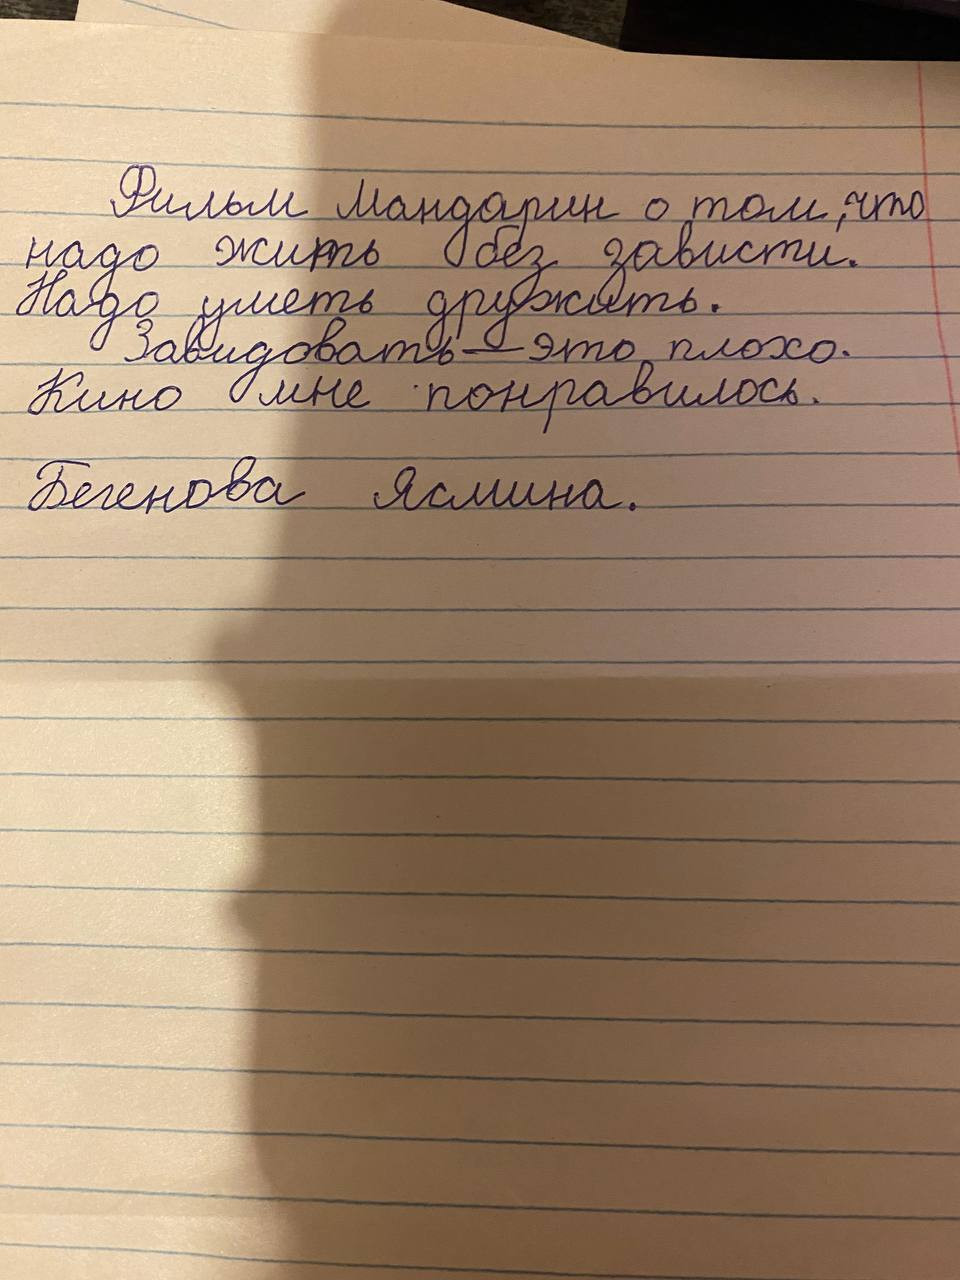 Фильм Мандарин о том, что
надо жить без зависти.
Надо уметь дружить.
Завидовать — это плохо.
Кино мне понравилось.
Бегенова Ясмина.